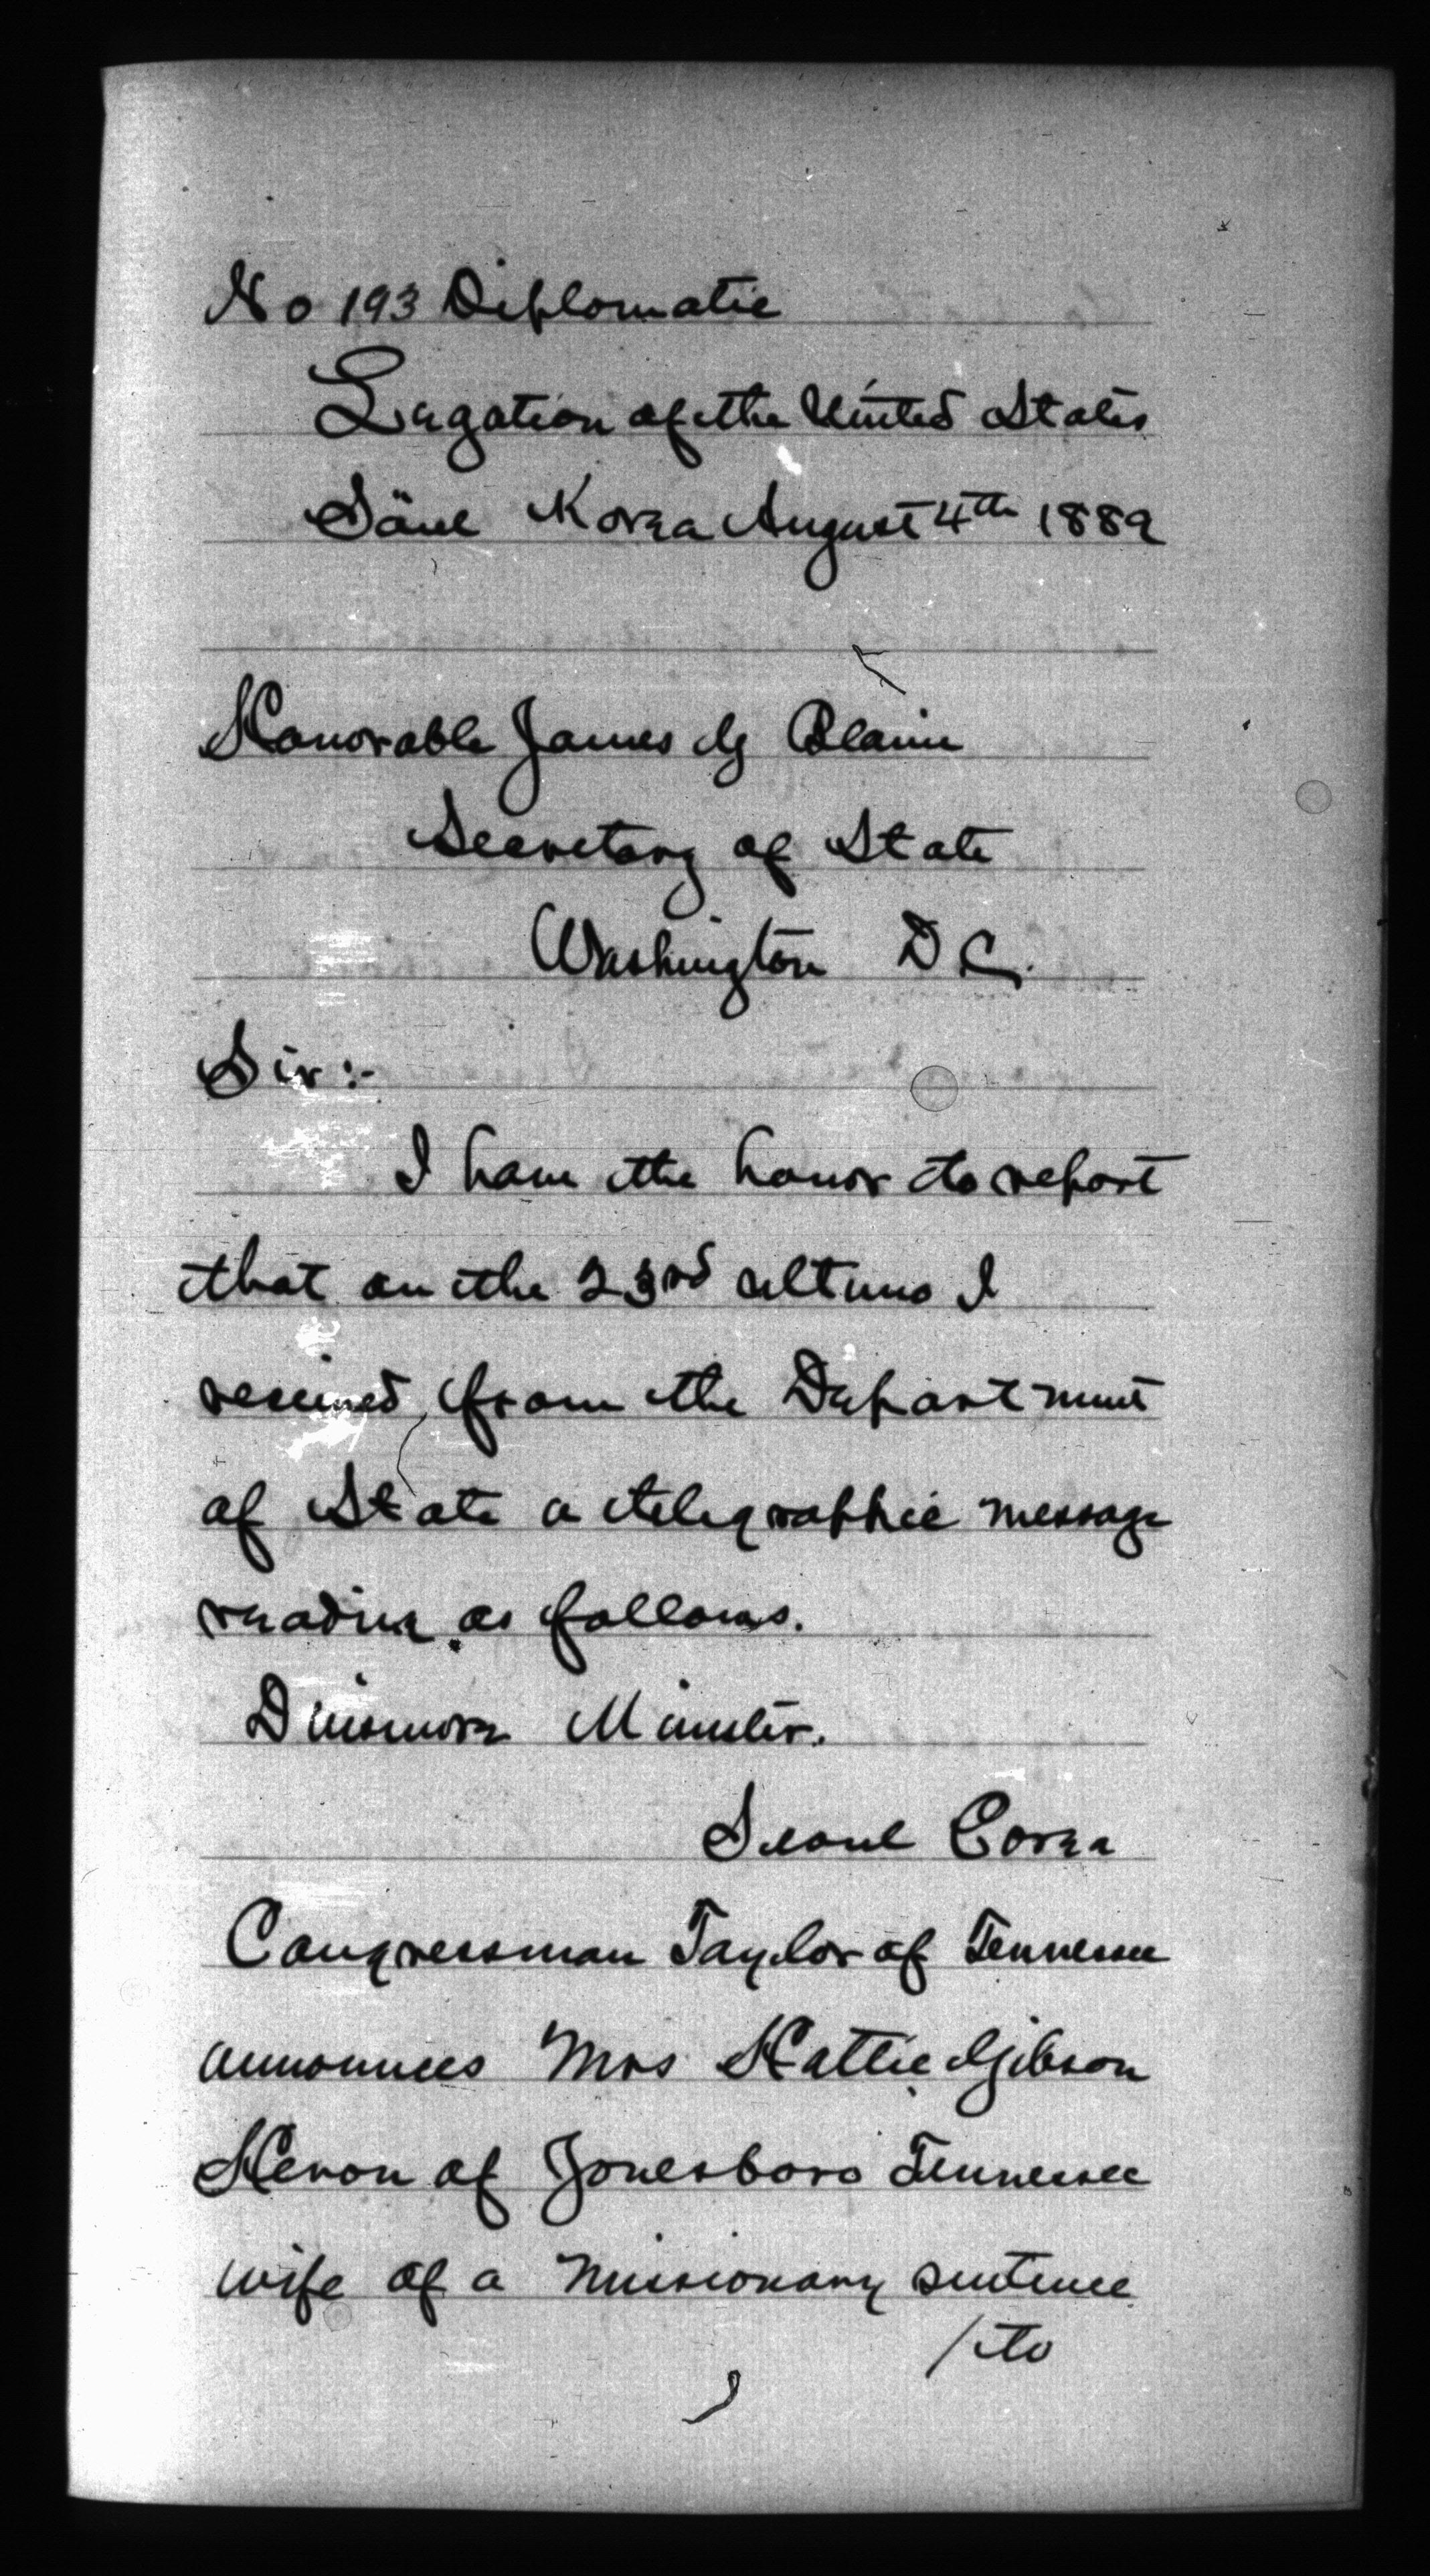 No 193 Diplomatic
Legation of the United States
Söul Korea August 4th 1889
Honorable James G Blaine
Secretary of State
Washington D C.
Sir:-
I have the honor to report
that on the 23rd ultimo I
received from the Department
of State a telegraphic message
reading as follows.
Dinsmore Minister.
Seoul Corea
Congressman Taylor of Tennessee
announces Mrs Hattie Gibson
Heron of Jonesboro Tennessee
wife of a missionary sentence
/to